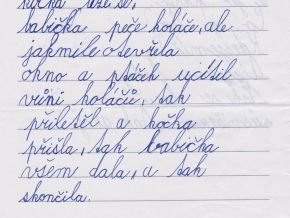 babička peče holáče, ale
jakmile otevřela
okno a ptáček ucítil
vůni holáčů, tak
přiletěl a kočka
přišla, tak babička
všem dala, a tak
skončila.